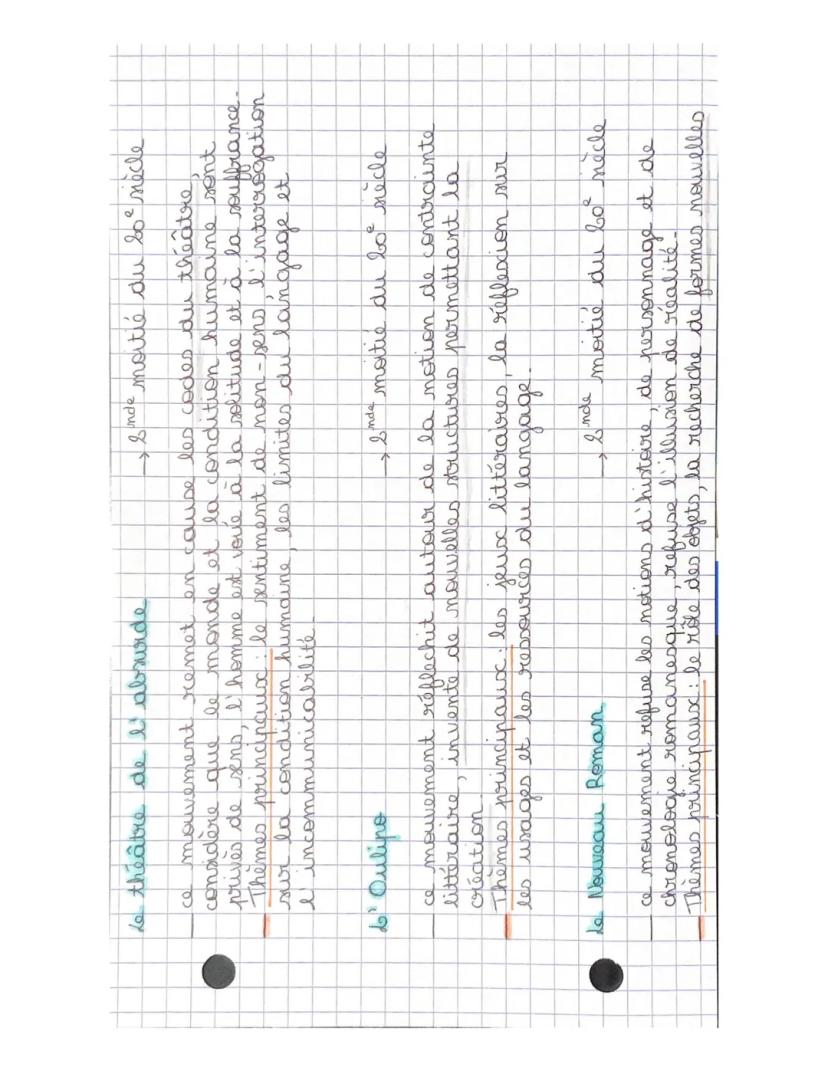 Le théâtre de l'absurde → 2nde moitié du 20e siècle
— ce mouvement remet en cause les codes du théâtre,
considère que le monde et la condition humaine sont
privés de sens, l'homme est voué à la solitude et à la souffrance.
Thèmes principaux : le sentiment de non-sens, l'interrogation
sur la condition humaine, les limites du langage et
l'incommunicabilité.
L'Oulipo → 2nde moitié du 20e siècle
— ce mouvement réfléchit autour de la notion de contrainte
littéraire, invente de nouvelles structures permettant la
création.
Thèmes principaux : les jeux littéraires, la réflexion sur
les usages et les ressources du langage.
Le Nouveau Roman → 2nde moitié du 20e siècle
— ce mouvement refuse les notions d'histoire, de personnage et de
chronologie romanesque, refuse l'illusion de réalité.
Thèmes principaux : le rôle des objets, la recherche de formes nouvelles